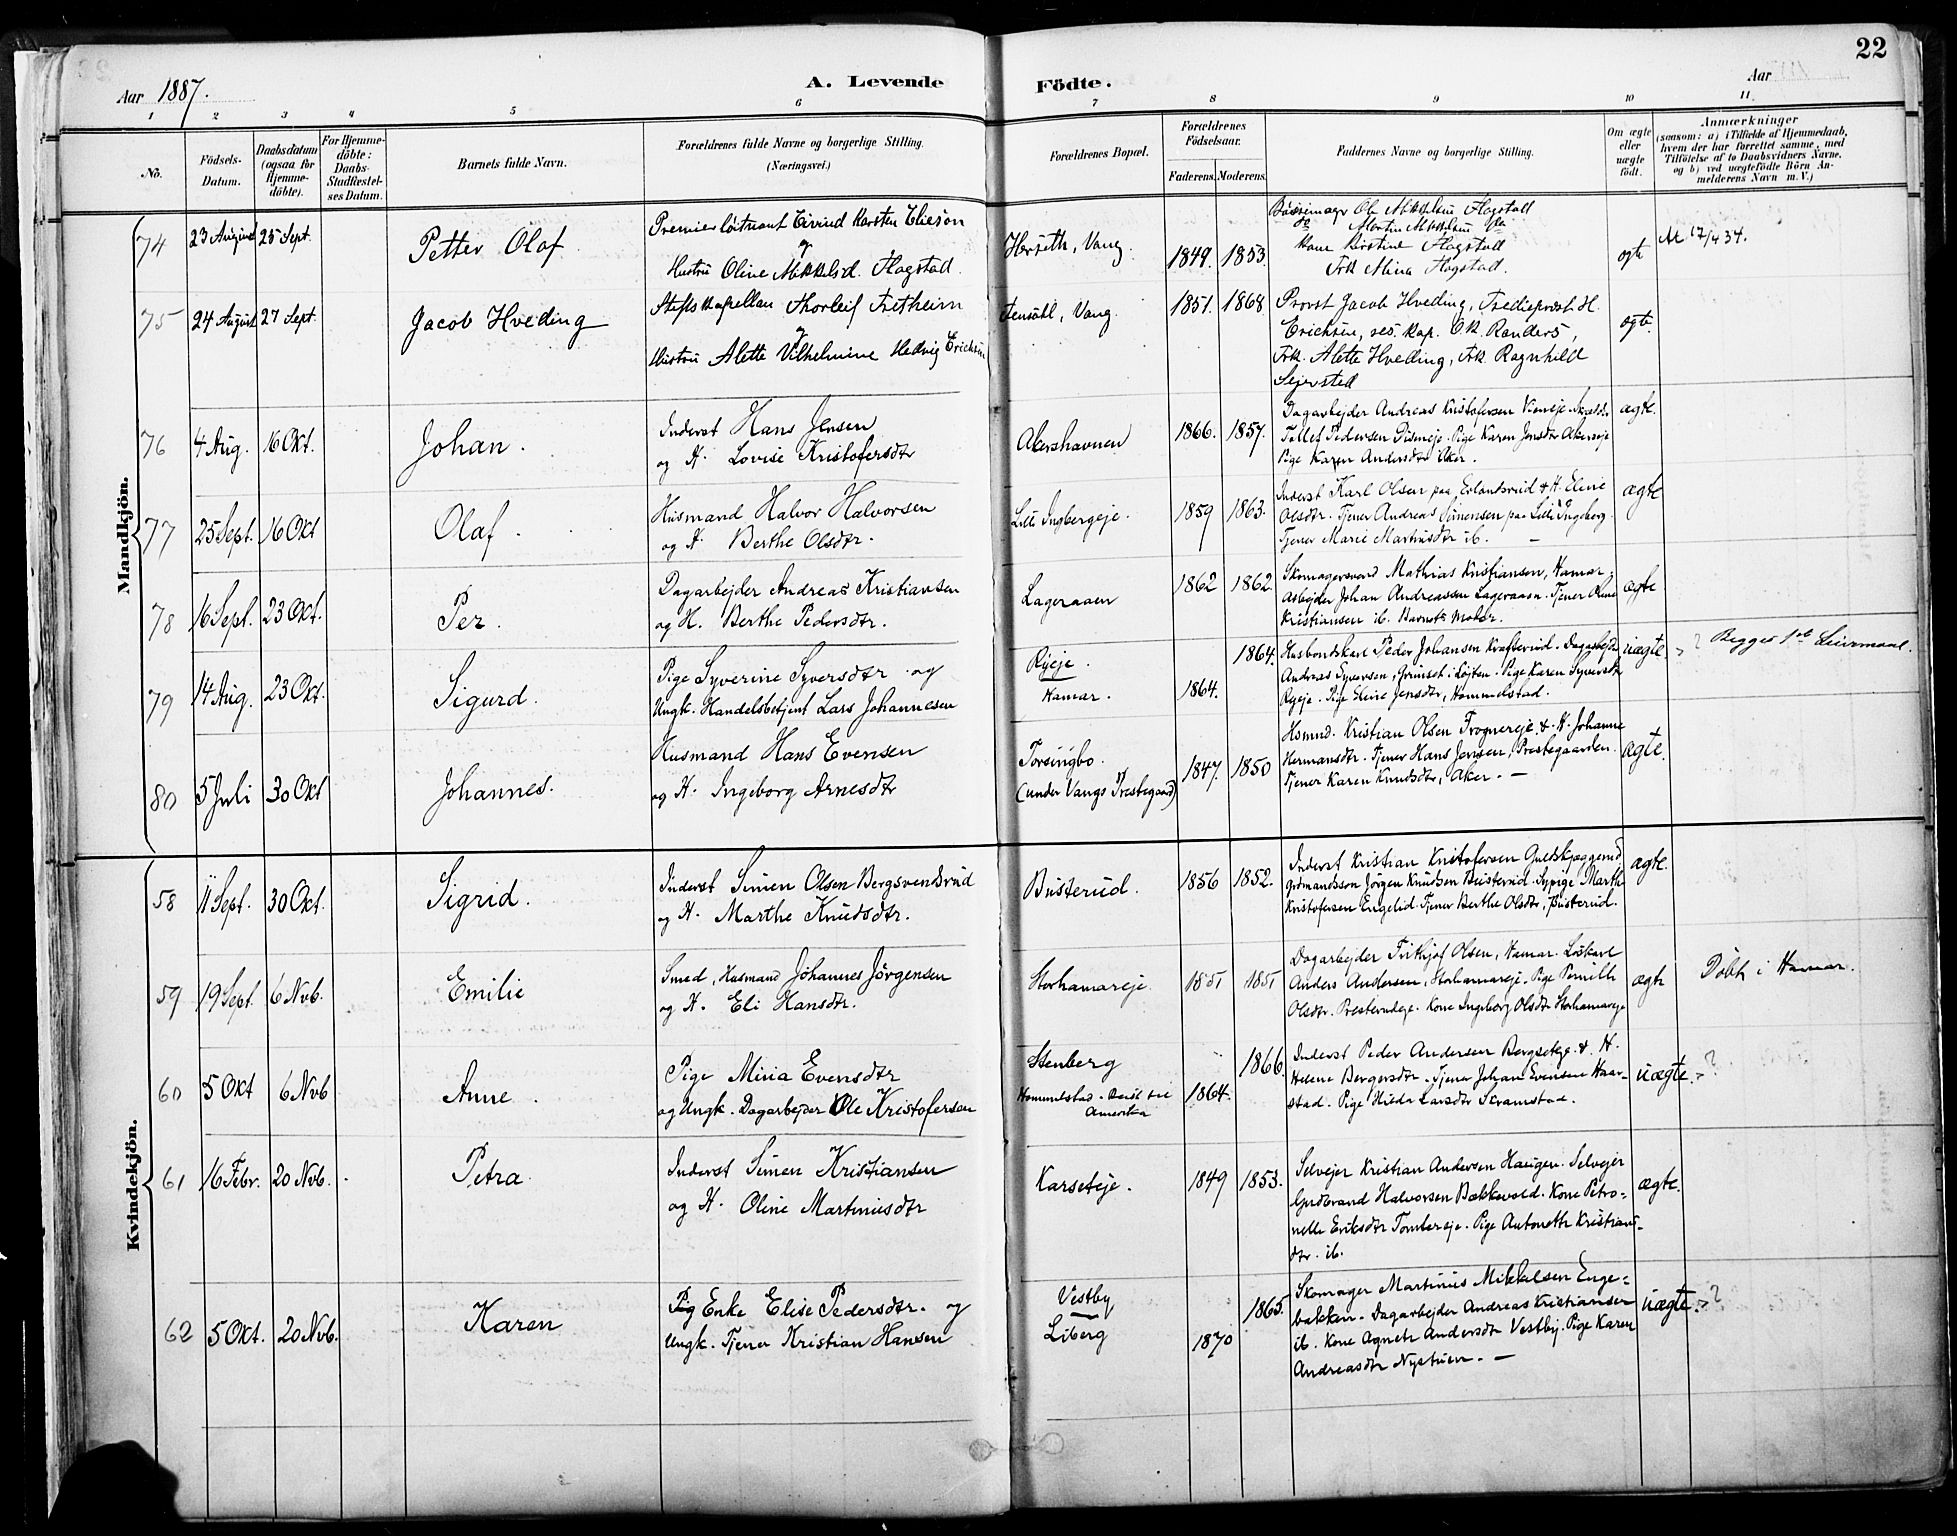 22
Aar 1887. A. Levende Födte. Aar
1 2 3 4 5 6 7 8 9 10 11.
No. Födsels-Datum. Daabsdatum (ogsaa for Hjemmedöbte). For Hjemmedöbte: Daabs-Stadfæstelses Datum. Barnets fulde Navn. Forældrenes fulde Navne og borgerlige Stilling. (Næringsvei.) Forældrenes Bopæl. Forældrenes Födselsaar. Faderens. Moderens. Faddernes Navne og borgerlige Stilling. Om ægte eller uægte födt. Anmærkninger
(saasom: a) i Tilfælde af Hjemmedaab, hvem der har forrettet samme, med Tilföielse af to Daabsvidners Navne, og b) ved uægtefödte Börn Anmelderens Navn m. V.)
Mandkjön.
74 23 August 25 Sept. Petter Olaf
Premierlöitnant Eivind Karsten Eliesön
og
Hustru Oline Mikkelsd. Flagstad.
Horseth, Vang. 1849. 1853.
Ole Mikkelsen Flagstad
Do Martin Mikkelsen Do
Kone Kirstine Flagstad
Frk Mina Flagstad.
ægte
At 17/4 34.
75 24 August 27 Sept. Jacob Hveding
Stiftskapellan Thorleif Fretheim
og
Hustru Alette Vilhelmine Hedvig Ericksen
Vang. 1851. 1868
Provst Jacob Hveding, Tredieprest H.
Erichsen, res. kap. Ok. Randers,
Frk. Alette Hveding, Frk. Ragnhild
Sejersted
ægte
76 4 Aug. 16 Okt. Johan.
Inderst Hans Jensen
og H. Lovise Kristofersdtr
Akershavnen 1866. 1857.
Dagarbejder Andreas Kristofersen
Tollef Pedersen Pige Karen Jensdtr Akerseje
Pige Karen Andersdtr Aker.
ægte.
77 25 Sept. 16 Okt Olaf.
Husmand Halvor Halvorsen
og H. Berthe Olsdtr.
Lille Ingbergeje. 1859 1863.
Inderst Karl Olsen paa Erlandsrud & H. Eline
Olsdtr. Tjener Andreas Simensen paa Lille Ingeberg
Tjener Marie Martinusdtr ib. —
ægte
78 16 Sept. 23 Okt. Per.
Dagarbejder Andreas Kristiansen
og H. Berthe Pedersdtr.
Lageraaen 1862 1862.
Skomagersvend Mathias Kristiansen, Hamar.
Arbejder Johan Andreassen Lageraaen. Tjener Oline
Kristiansen ib. Barnets Moder.
ægte
79 14 Aug. 23 Okt. Sigurd.
Pige Syverine Syversdtr og
Ungk. Handelsbetjent Lars Johannesen
Ryeje.
Hamar. 1864. 1864.
Husbondskarl Peder Johansen Krafterud. Dagarbejder
Andreas Syversen, Grimset i Løiten. Pige Karen Syversdtr
Ryeje. Pige Eline Jensdtr, Hommelstad.
uægte. ?
Begges 1ste Leiermaal.
80 5 Juli 30 Okt Johannes.
Husmand Hans Evensen
og H. Ingeborg Arnesdtr
Torsingbo.
(under Vangs Prestegaard) 1847. 1850
Hsmnd. Kristian Olsen Frognereje & H. Johanne
Hermansdtr. Tjener Hans Jensen, Prestegaarden.
Tjener Karen Knudsdtr, Aker. —
ægte.
Kvindekjön.
58 11 Sept. 30 Okt. Sigrid.
Inderst Simen Olsen Bergsvendsrud
og H. Marthe Knudsdtr.
Busterud. 1856 1852.
Inderst Kristian Kristofersen
Grdmandssön Jörgen Knudsen Busterud. Sypige Marthe
Kristofersen Engelid. Tjener Berthe Olsdtr, Busterud.
ægte.
59 19 Sept. 6 Nvb. Emilie
Smed, Husmand Johannes Jörgensen
og H. Eli Hansdtr.
Storhamareje. 1851 1851
Dagarbejder Frithjof Olsen, Hamar. Löskarl
Anders Andersen, Storhamareje. Pige Pernille
Olsdtr. Presterudeje. Kone Ingeborg Olsdtr Storhamareje
ægte
Döbt i Hamar.
60 5 Okt 6 Nvb Anne.
Pige Mina Evensdtr
og Ungk. Dagarbejder Ole Kristofersen
Stenberg
Hommelstad. Reist til
Amerika 1864. 1866.
Inderst Peder Andersen Bergseteje & H.
Helene Bergersdtr. Tjener Johan Evensen Haar-
stad. Pige Hilda Larsdtr Skramstad.
uægte. ?
61 16 Febr. 20 Nvb. Petra
Inderst Simen Kristiansen
og H. Oline Martinusdtr
Karseteje. 1849 1853.
Selvejer Kristian Andersen Haugen. Selvejer
Gudbrand Halvorsen Bækkevold. Kone Petro-
nelle Eriksdtr Tomtereje. Pige Antonette Kristians-
dtr. ib.
ægte.
62 5 Okt. 20 Nvb. Karen
Pig Enke Elise Pedersdtr. og
Ungk. Tjener Kristian Hansen
Vestby
Liberg 1870 1865.
Skomager Martinus Mikkelsen Enge-
bakken. Dagarbejder Andreas Kristiansen
ib. Kone Agnete Andersdtr Vestby. Pige Karen
Andreasdtr Nystuen. —
uægte. ?